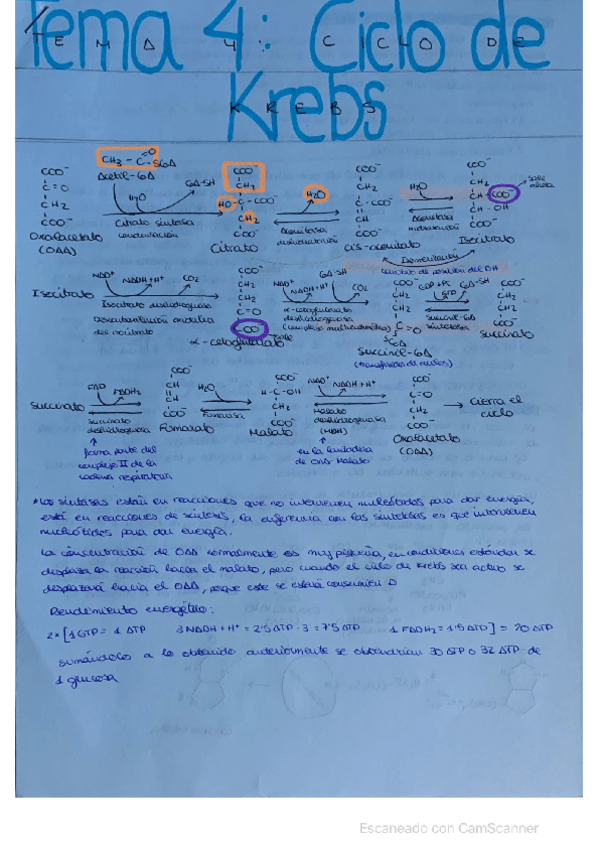 Tema 4: Ciclo de
Krebs
TEMA 4: CICLO DE
KREBS
CH3 - C=O SCoA
Acetil-CoA
COO⁻
C=O
CH2
COO⁻
Oxalacetato
(OAA)
H2O
CoA-SH
Citrato sintasa
condensación
COO⁻
CH2
HO-C-COO⁻
CH2
COO⁻
Citrato
H2O
Aconitasa
deshidratación
COO⁻
CH2
C-COO⁻
CH
COO⁻
cis-aconitato
H2O
Aconitasa
hidratación
COO⁻
CH2
CH-COO⁻
CH-OH
COO⁻
Isocitrato
Isomerización
cambio de posición del OH
Isocitrato
NAD⁺
NADH+H⁺
CO2
Isocitrato deshidrogenasa
Descarboxilación oxidativa
del isocitrato
COO⁻
CH2
CH2
C=O
COO⁻
α-cetoglutarato
NAD⁺
CoA-SH
NADH+H⁺
CO2
α-cetoglutarato
deshidrogenasa
(complejo multienzimático)
COO⁻
CH2
CH2
C=O
S-CoA
Succinil-CoA
GDP+Pi
GTP
CoA-SH
Succinil-CoA
sintetasa
COO⁻
CH2
CH2
COO⁻
Succinato
Succinato
FAD
FADH2
Succinato
deshidrogenasa
forma parte del
complejo II de la
cadena respiratoria
COO⁻
CH
CH
COO⁻
Fumarato
H2O
Fumarasa
COO⁻
H-C-OH
CH2
COO⁻
Malato
NAD⁺
NADH+H⁺
Malato
deshidrogenasa
(MDH)
en la lanzadera
de Malato
COO⁻
C=O
CH2
COO⁻
Oxalacetato
(OAA)
→ cierra el
ciclo
*Las sintasas están en reacciones que no intervienen nucleótidos para dar energía,
está en reacciones de síntesis, la diferencia con las sintetasas es que intervienen
nucleótidos para dar energía.
La concentración de OAA normalmente es muy pequeña, en condiciones estándar se
desplaza la reacción hacia el malato, pero cuando el ciclo de Krebs sea activo se
desplazará hacia el OAA, porque este se estará consumiendo
Rendimiento energético:
2x [1 GTP = 1 ATP 3 NADH+H⁺ = 2'5 ATP · 3 = 7'5 ATP 1 FADH2 = 1'5 ATP] = 20 ATP
sumándolo a lo obtenido anteriormente se obtendrían 30 ATP o 32 ATP de
1 glucosa
Escaneado con CamScanner